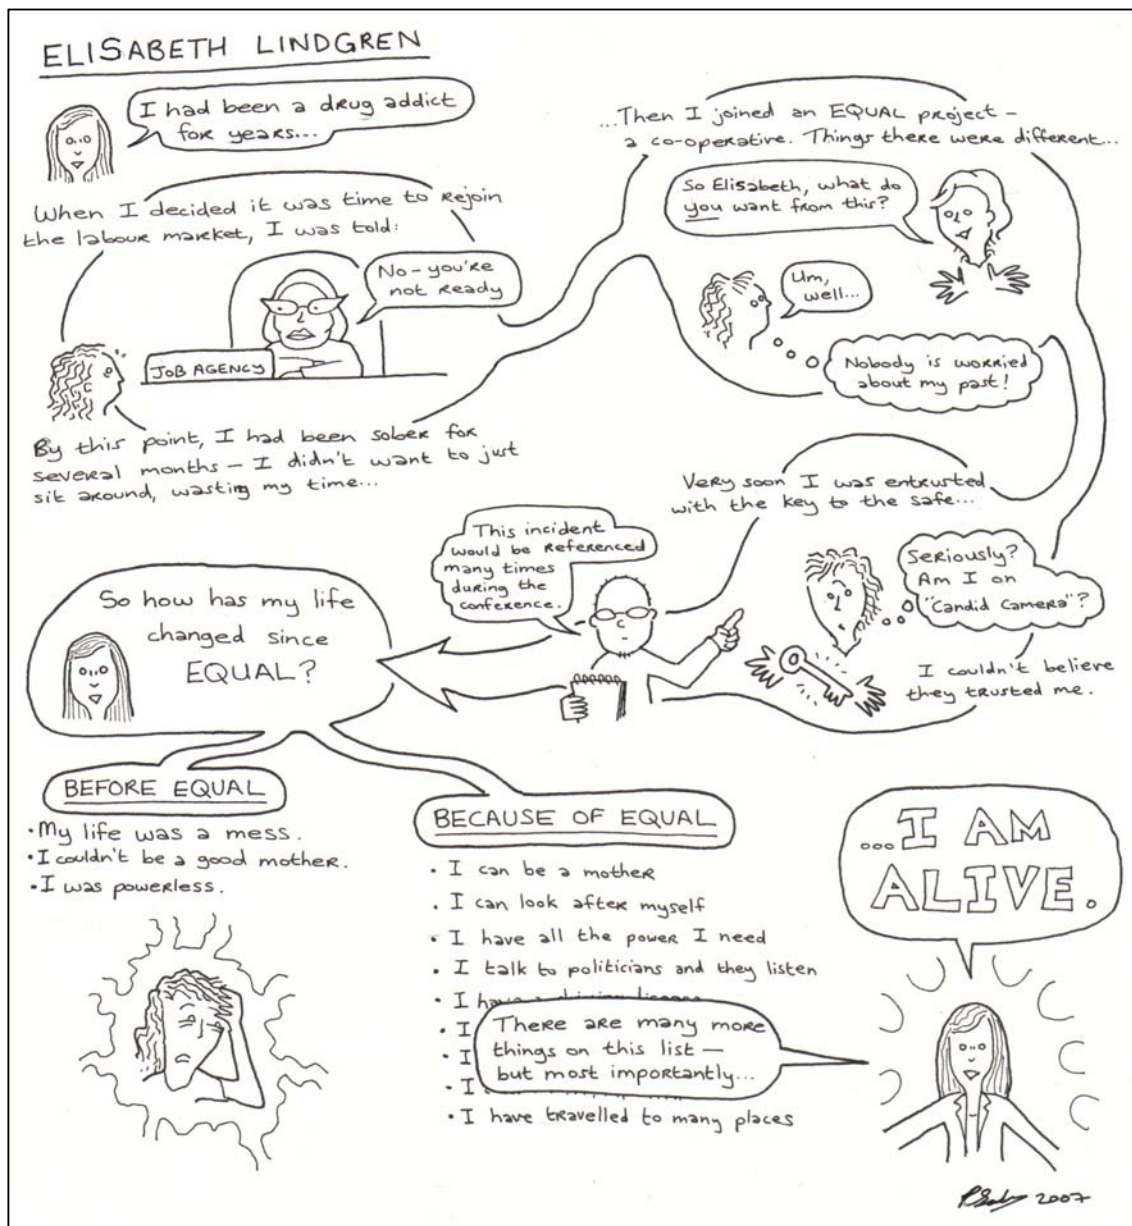 ELISABETH LINDGREN
I had been a drug addict
for years...
When I decided it was time to rejoin
the labour market, I was told:
No - you're
not ready
JOB AGENCY
By this point, I had been sober for
several months - I didn't want to just
sit around, wasting my time...
...Then I joined an EQUAL project -
a co-operative. Things there were different...
So Elisabeth, what do
you want from this?
Um,
well...
Nobody is worried
about my past!
Very soon I was entrusted
with the key to the safe...
Seriously?
Am I on
"Candid Camera"?
I couldn't believe
they trusted me.
This incident
would be referenced
many times
during the
conference.
So how has my life
changed since
EQUAL?
BEFORE EQUAL
• My life was a mess.
• I couldn't be a good mother.
• I was powerless.
BECAUSE OF EQUAL
• I can be a mother
• I can look after myself
• I have all the power I need
• I talk to politicians and they listen
• I have
• I
• I
• I
• I have travelled to many places
There are many more
things on this list -
but most importantly...
...I AM
ALIVE.
2007